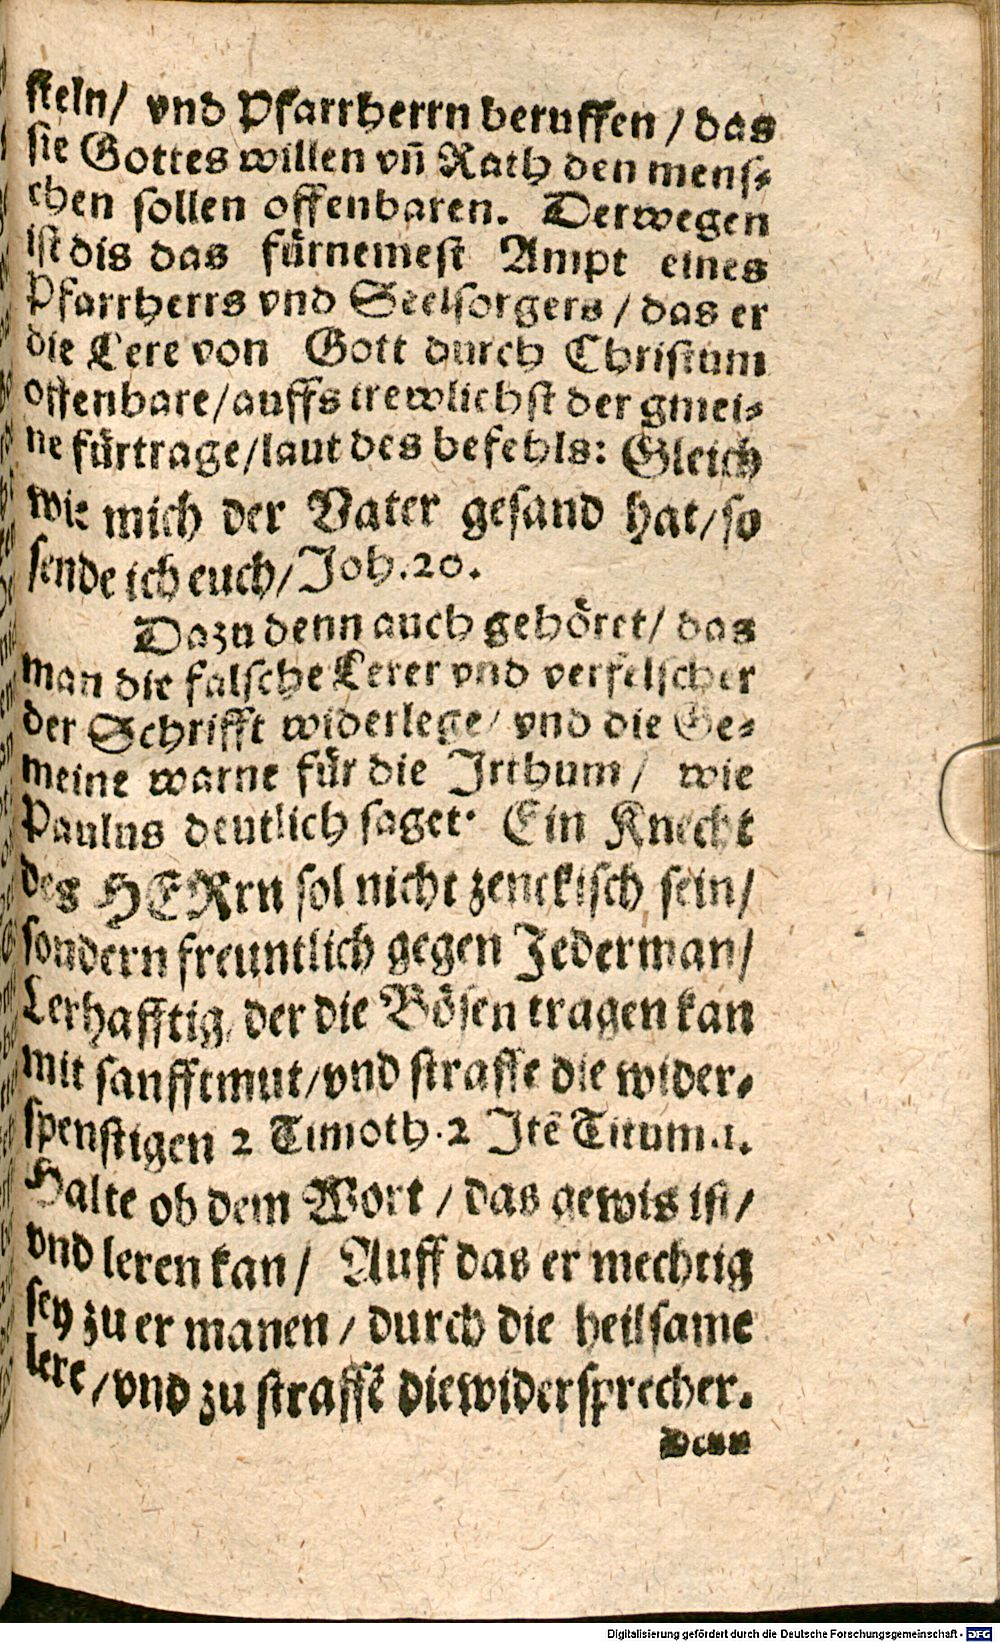 steln/ vnd Pfarrherrn beruffen / das
sie Gottes willen vn̄ Rath den mens⸗
chen sollen offenbaren. Derwegen
ist dis das fürnemest Ampt eines
Pfarrherrs vnd Seelsorgers / das er
die Lere von Gott durch Christum
offenbare/auffs trewlichst der gmei⸗
ne fürtrage/laut des befehls: Gleich
wie mich der Vater gesand hat/so
sende ich euch/Joh.20.
Dazu denn auch gehöret/ das
man die falsche Lerer vnd verfelscher
der Schrifft widerlege/ vnd die Ge⸗
meine warne für die Irthum/ wie
Paulus deutlich saget· Ein Knecht
des HERrn sol nicht zenckisch sein/
sondern freuntlich gegen Jederman/
Lerhafftig, der die Bösen tragen kan
mit sanfftmut/vnd straffe die wider⸗
spenstigen 2 Timoth.2 Itē Titum.1.
Halte ob dem Wort / das gewis ist/
vnd leren kan/ Auff das er mechtig
sey zu er manen / durch die heilsame
lere /vnd zu straffē diewidersprecher.
Denn
Digitalisierung gefördert durch die Deutsche Forschungsgemeinschaft - DFG